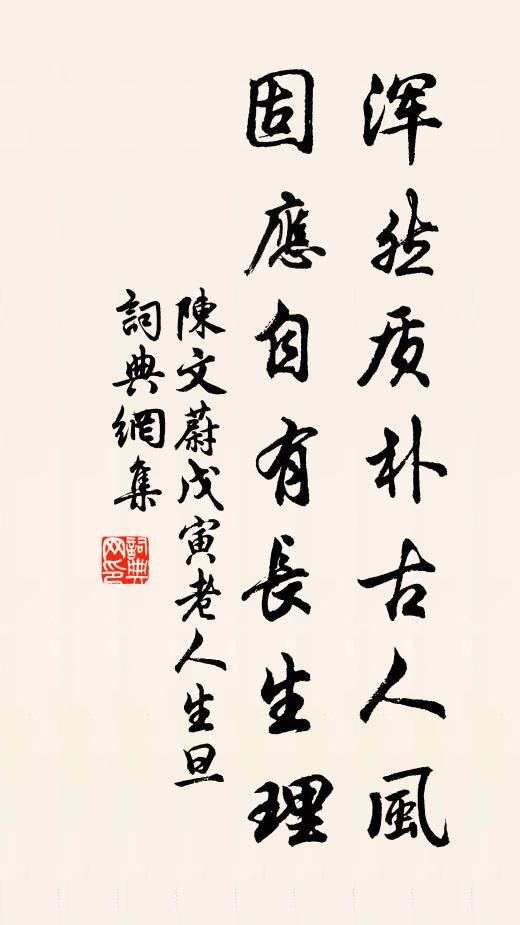 浑然质朴古人風
固應自有長生理
陳文蔚戊寅老人生旦
詞典網集
詞典網印